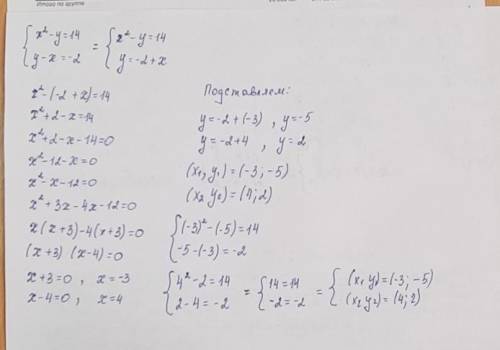 Итого по группе
{ x²-y=14 = { x²-y=14
{ y-x=-2 { y=-2+x
x²-(-2+x)=14
x²+2-x=14
x²+2-x-14=0
x²-12-x=0
x²-x-12=0
x²+3x-4x-12=0
x(x+3)-4(x+3)=0
(x+3)(x-4)=0
x+3=0, x=-3
x-4=0, x=4
Подставляем:
y=-2+(-3), y=-5
y=-2+4, y=2
(x₁,y₁)=(-3;-5)
(x₂ y₂)=(4;2)
{ (-3)²-(-5)=14
{ -5-(-3)=-2
{ 4²-2=14 = { 14=14 = { (x₁ y₁)=(-3;-5)
{ 2-4=-2 { -2=-2 { (x₂ y₂)=(4;2)